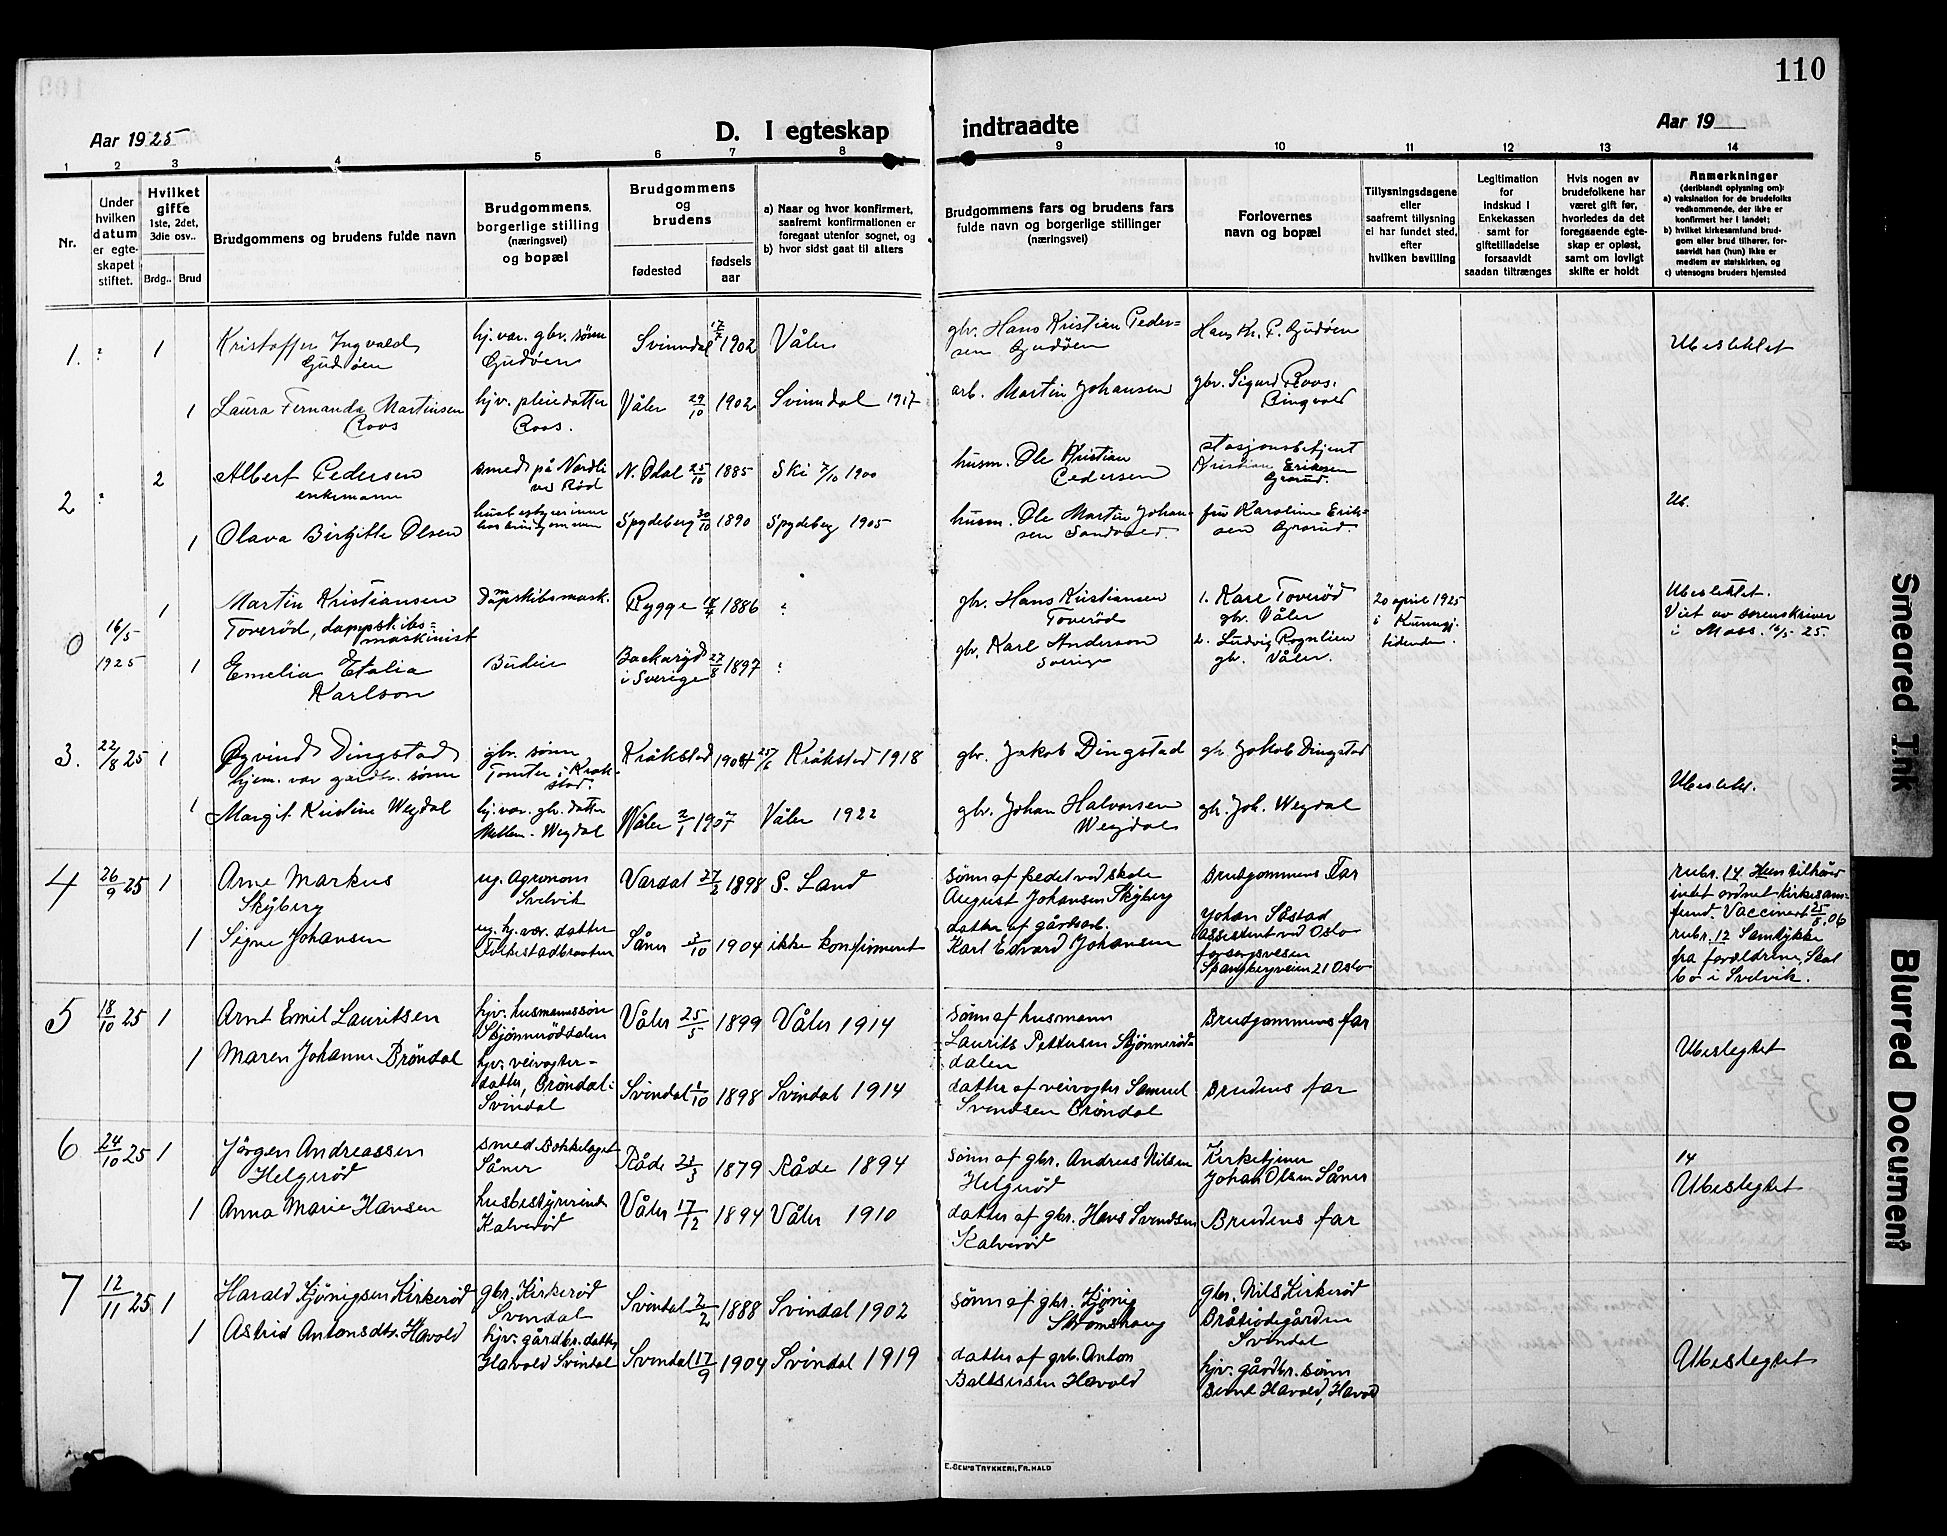 110
Aar 1925
D. I egteskap indtraadte
Aar 19
1 2 3 4 5 6 7 8 9 10 11 12 13 14
Nr.
Under
hvilken
datum
er egte-
skapet
stiftet.
Hvilket
gifte
1ste, 2det,
3die osv..
Brdg.. Brud
Brudgommens og brudens fulde navn
Brudgommens
borgerlige stilling
(næringsvei)
og bopæl
Brudgommens
og
brudens
fødested
fødsels
aar
a) Naar og hvor konfirmert,
saafremt konfirmationen er
foregaat utenfor sognet, og
b) hvor sidst gaat til alters
Brudgommens fars og brudens fars
fulde navn og borgerlige stillinger
(næringsvei)
Forlovernes
navn og bopæl
Tillysningsdagene
eller
saafremt tillysning
ei har fundet sted,
efter
hvilken bavilling
Legitimation
for
indskud i
Enkekassen
samt for
giftetilladelse
forsaavidt
saadan tiltrænges
Hvis nogen av
brudefolkene har
været gift før,
hvorledes da det
foregaaende egte-
skap er opløst,
samt om lovligt
skifte er holdt
Anmerkninger
(deriblandt oplysning om):
a) vaksination for de brudefolks
vedkommende, der ikke er
konfirmert her i landet;
b) hvilket kirkesamfund brud-
gom eller brud tilhører, for-
saavidt han (hun) ikke er
medlem av statskirken, og
c) utensogns bruders hjemsted
1. 1
Kristoffer Ingvald
Gudøen
hj. var. gbr. sønn
Gudøen
Svinndal 17/7 1902
Våler
gbr. Hans Kristian Peder-
sen Gudøen
Hans Kr. P. Gudøen
Ubeslektet
1
Laura Fernanda Martinsen
Roos
hjv. pleiedatter
Roos.
Våler 29/10 1902
Svinndal 1917
arb. Martin Johansen
gbr. Sigurd Roos.
Ringvold
2 2
Albert Pedersen
enkemann
smed på Nordli
ved Rød
N. Odal 25/10 1885
Ski 7/10 1900
husm. Ole Kristian
Pedersen
stasjonsbetjent
Kristian Eriksen
Grorud.
Ub.
1
Olava Birgitte Olsen
Spydeberg 30/10 1890
Spydeberg 1905
husm. Ole Martin Johan-
sen Sandvold.
fru Karoline Erik-
sen Grorud.
0 16/5
1925
1
Martin Kristiansen
Toverød, dampskibs-
maskinist
Dampskibsmask.
Rygge 18/4 1886
gbr. Hans Kristiansen
Toverød
1. Karl Toverød
gbr. Våler
20 april 1925
i Kunngj.
tidende
Ubeslektet.
Viet av sorenskriver
i Moss. 16/5 25.
1
Emelia Etalia
Karlson
Budeie
Backaryd
i Sverige 27/8 1897
gbr. Karl Anderson
Sverige
2. Ludvig Rognlien
gbr. Våler.
3. 22/8 25 1
Øyvind Dingstad
hjem. var gardbr. sønn
gbr. sønn
Tomter i Kråk-
stad.
Kråkstad 1904 25/6
Kråkstad 1918
gbr. Jakob Dingstad
gbr. Jakob Dingstad
Ubeslekt.
1
Margit Kristine Wegdal
hj. var. gbr. datter
Mellem-Wegdal
Våler 2/1 1907
Våler 1922
gbr. Johan Halvorsen
Wegdal
gbr. Joh. Wegdal
4 26/9 25 1
Arne Markus
Skyberg
ug. Agronom
Svelvik
Vardal 27/2 1898
S. Land
sønn af pedel ved skole
August Johansen Skyberg
Brudgommens Far
rubr. 14. Hun tilhører
intet ordnet kirkesam-
fund. Vaccinert 25/8. 06
rubr. 12 Samtykke
fra forældrene, Skal
bo i Svelvik.
1
Signe Johansen
ug. hj. vær. datter
Folkestadbraaten
Såner 3/10 1904
ikke konfirmert
datter af gårdarb.
Karl Edvard Johansen
Johan Såstad
assistent ved Oslo
forsorgsvesen
Spangbergveien 21 Oslo
5 18/10 25 1
Arnt Emil Lauritsen
hjv. husmannssøn
Skjønnerøddalen
Våler 25/5 1899
Våler 1914
sønn af husmann
Laurits Pettersen Skjønnerød-
dalen
Brudgommens far
Ubeslegtet
1
Maren Johanne Brøndal
hjv. veivogter-
datter, Brøndal-
Svindal
Svindal 1/10 1898
Svindal 1914
datter af veivogter Samuel
Svendsen Brøndal
Brudens far
6 24/10 25 1
Jørgen Andreassen
Helgerød
smed Bokkelaget
Såner
Råde 21/3 1879
Råde 1894
sønn af gbr. Andreas Nilsen
Helgerød
Kirketjener
Johan Olsen Såner
14
Ubeslegtet
1
Anna Marie Hansen
husbestyrerinde
Kalverød
Våler 17/12 1894
Våler 1910
datter af gbr. Hans Svendsen
Kalverød
Brudens far
7 12/11 25 1
Harald Kjønigsen Kirkerød
gbr. Kirkerød
Svindal
Svindal 2/2 1888
Svindal 1902
sønn af gbr. Kjønig
Strømshaug
gbr. Nils Kirkerød
Bråtiødegården
Svindal
1
Astrid Antonsdtr. Havold
hjv. gårdbr. datter
Havold Svindal
Svindal 17/9 1904
Svindal 1919
datter af grb. Anton
Baltsersen Havold
hjv. gårdbr. sønn
Bernt Havold, Havold
Ubeslegtet
E. SEM'S TRYKKERI, FR.HALD
Smeared Ink
Blurred Document